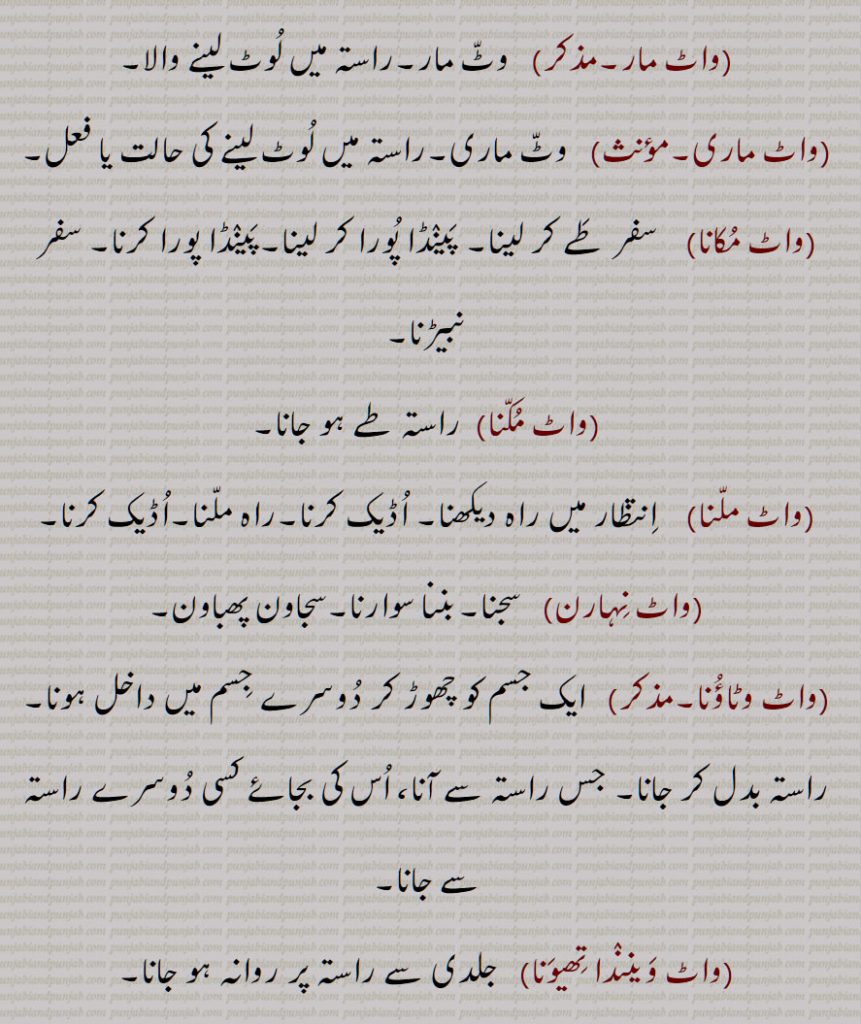 (واٹ مار۔مذکر) وٹّ مار۔راستہ میں لُوٹ لینے والا۔
(واٹ ماری۔مؤنث) وٹّ ماری۔راستہ میں لُوٹ لینے کی حالت یا فعل۔
(واٹ مُکانا) سفر طَے کر لینا۔ پَینْڈا پُورا کر لینا۔پَینْڈا پورا کرنا۔ سفر
نبیڑنا۔
(واٹ مُکّنا) راستہ طے ہو جانا۔
(واٹ ملّنا) اِنتظار میں راہ دیکھنا۔ اُڈیک کرنا۔راہ ملّنا۔اُڈیک کرنا۔
(واٹ نِہارن) سجنا۔ بننا سوارنا۔سجاون پھباون۔
(واٹ وٹاؤُنا۔مذکر) ایک جسم کو چھوڑ کر دُوسرے جِسم میں داخل ہونا۔
راستہ بدل کر جانا۔ جس راستہ سے آنا، اُس کی بجائے کسی دُوسرے راستہ
سے جانا۔
(واٹ وَیننْدا تِھیوَنا) جلدی سے راستہ پر روانہ ہو جانا۔